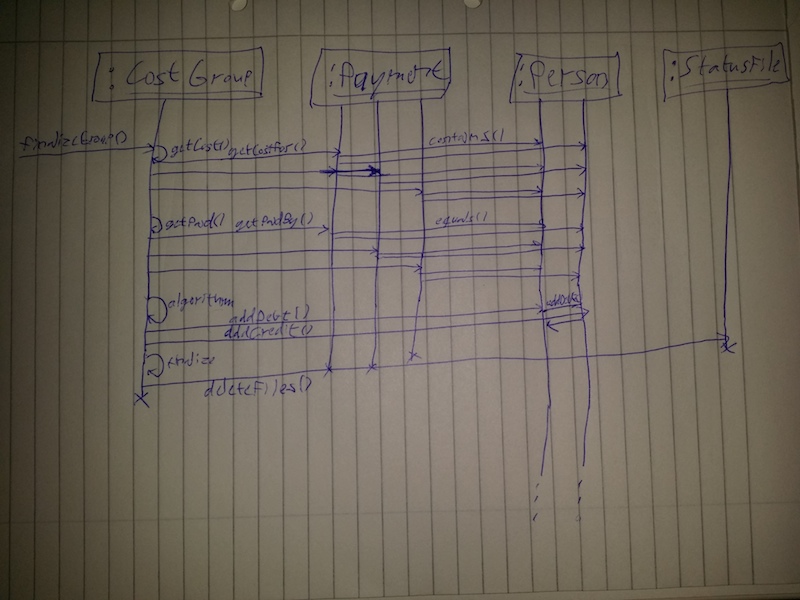 :CostGroup :Payment :Person :StatusFile
finalizeGroup()
getCost() getCostFor() contains()
getPaid() getPaidBy() equals()
algorithm
addDebt() addDebt
addCredit()
finalize
deleteFiles()